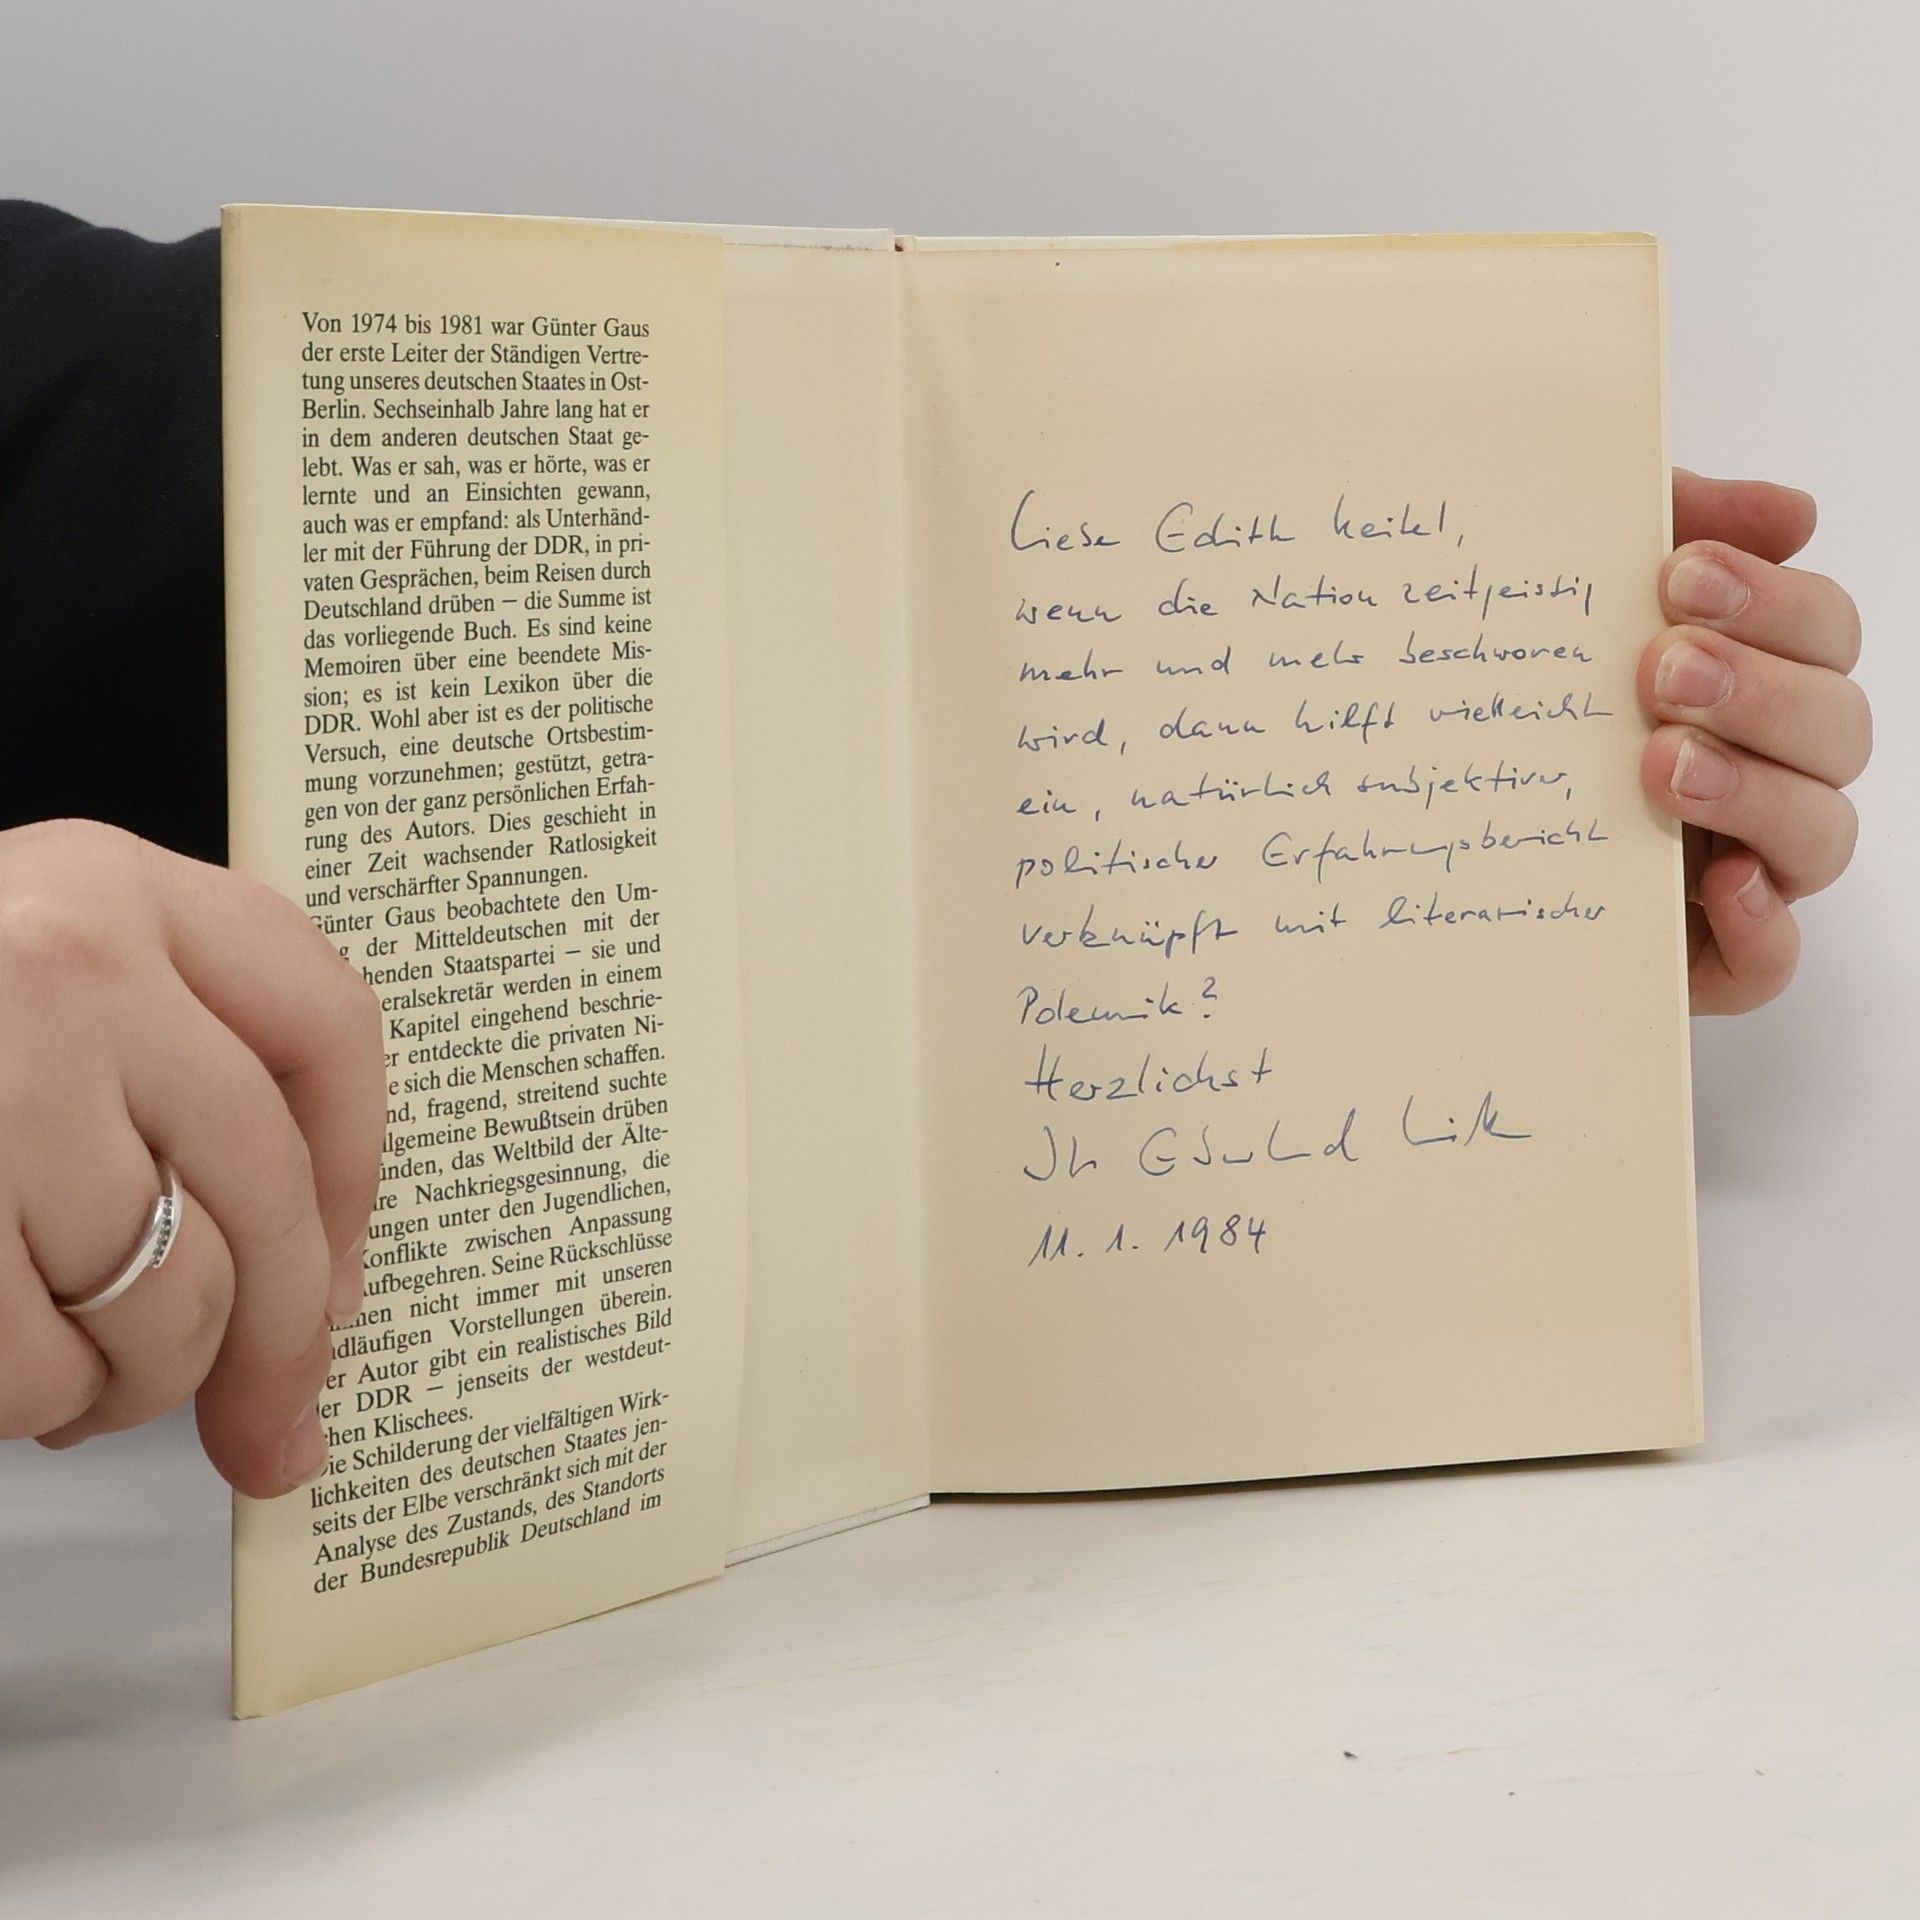 Von 1974 bis 1981 war Günter Gaus
der erste Leiter der Ständigen Vertre-
tung unseres deutschen Staates in Ost-
Berlin. Sechseinhalb Jahre lang hat er
in dem anderen deutschen Staat ge-
lebt. Was er sah, was er hörte, was er
lernte und an Einsichten gewann,
auch was er empfand: als Unterhänd-
ler mit der Führung der DDR, in pri-
vaten Gesprächen, beim Reisen durch
Deutschland drüben – die Summe ist
das vorliegende Buch. Es sind keine
Memoiren über eine beendete Mis-
sion; es ist kein Lexikon über die
DDR. Wohl aber ist es der politische
Versuch, eine deutsche Ortsbestim-
mung vorzunehmen; gestützt, getra-
gen von der ganz persönlichen Erfah-
rung des Autors. Dies geschieht in
einer Zeit wachsender Ratlosigkeit
und verschärfter Spannungen.
Günter Gaus beobachtete den Um-
g der Mitteldeutschen mit der
henden Staatspartei – sie und
eralsekretär werden in einem
Kapitel eingehend beschrie-
er entdeckte die privaten Ni-
e sich die Menschen schaffen.
nd, fragend, streitend suchte
llgemeine Bewußtsein drüben
ünden, das Weltbild der Älte-
re Nachkriegsgesinnung, die
ungen unter den Jugendlichen,
Konflikte zwischen Anpassung
Aufbegehren. Seine Rückschlüsse
men nicht immer mit unseren
dläufigen Vorstellungen überein.
er Autor gibt ein realistisches Bild
er DDR – jenseits der westdeut-
chen Klischees.
Die Schilderung der vielfältigen Wirk-
lichkeiten des deutschen Staates jen-
seits der Elbe verschränkt sich mit der
Analyse des Zustands, des Standorts
der Bundesrepublik Deutschland im
Liebe Edith Keitel,
wenn die Nation zeitgeistig
mehr und mehr beschworen
wird, dann hilft vielleicht
ein, natürlich subjektiver,
politischer Erfahrungsbericht
verknüpft mit literarischer
Polemik?
Herzlichst
Ihr
11. 1. 1984